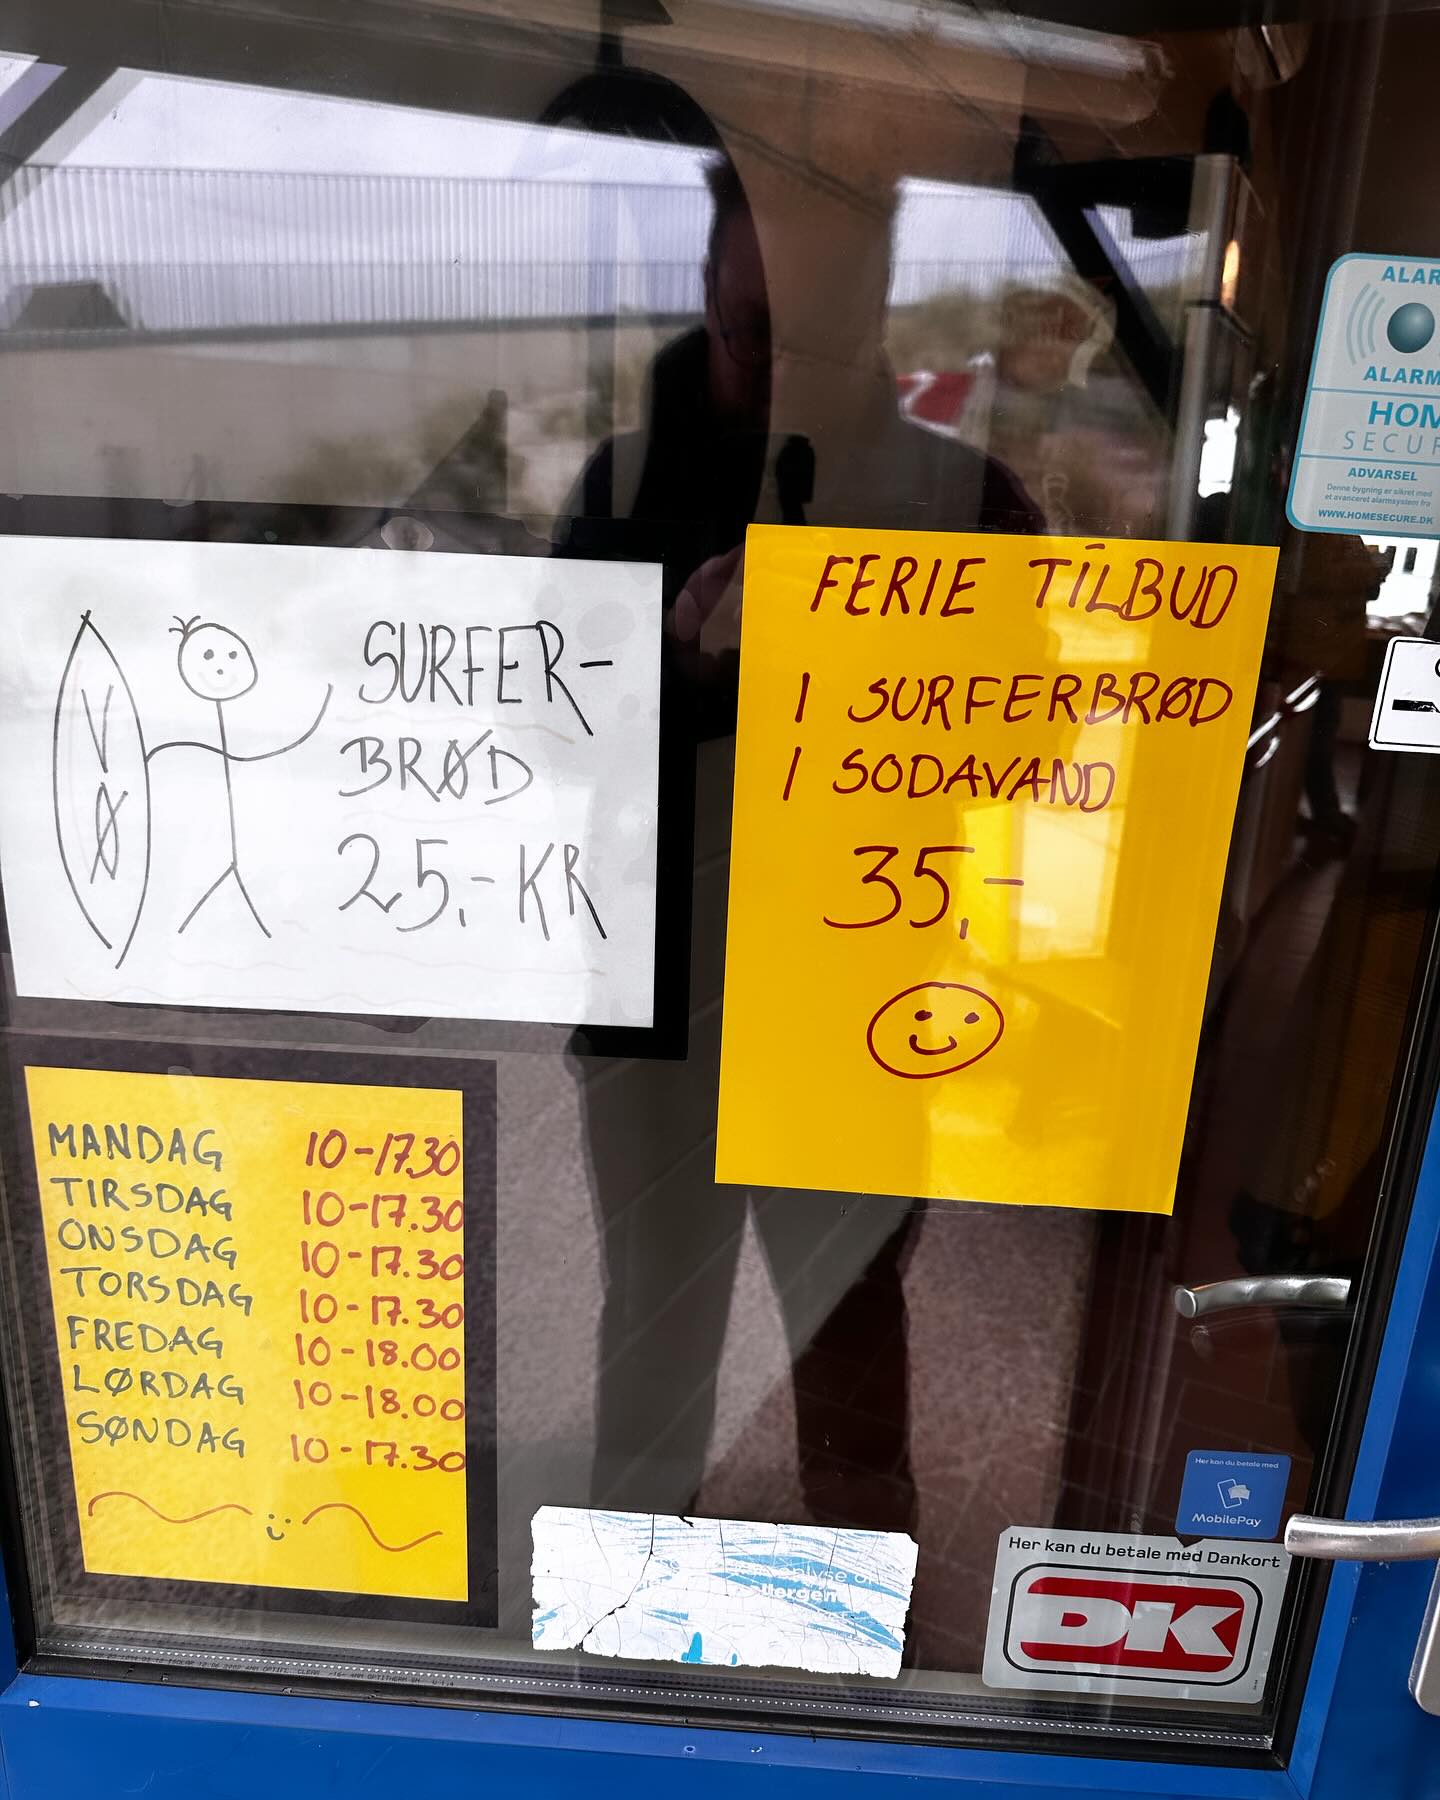 ALAR
ALARM
HOM
SECUR
ADVARSEL
Denne bygning er sikret med
et avanceret alarmsystem fra
WWW.HOMESECURE.DK
VØ
SURFER-
BRØD
25,- KR
FERIE TILBUD
1 SURFERBRØD
1 SODAVAND
35,-
MANDAG 10-17.30
TIRSDAG 10-17.30
ONSDAG 10-17.30
TORSDAG 10-17.30
FREDAG 10-18.00
LØRDAG 10-18.00
SØNDAG 10-17.30
Her kan du betale med
MobilePay
Her kan du betale med Dankort
DK